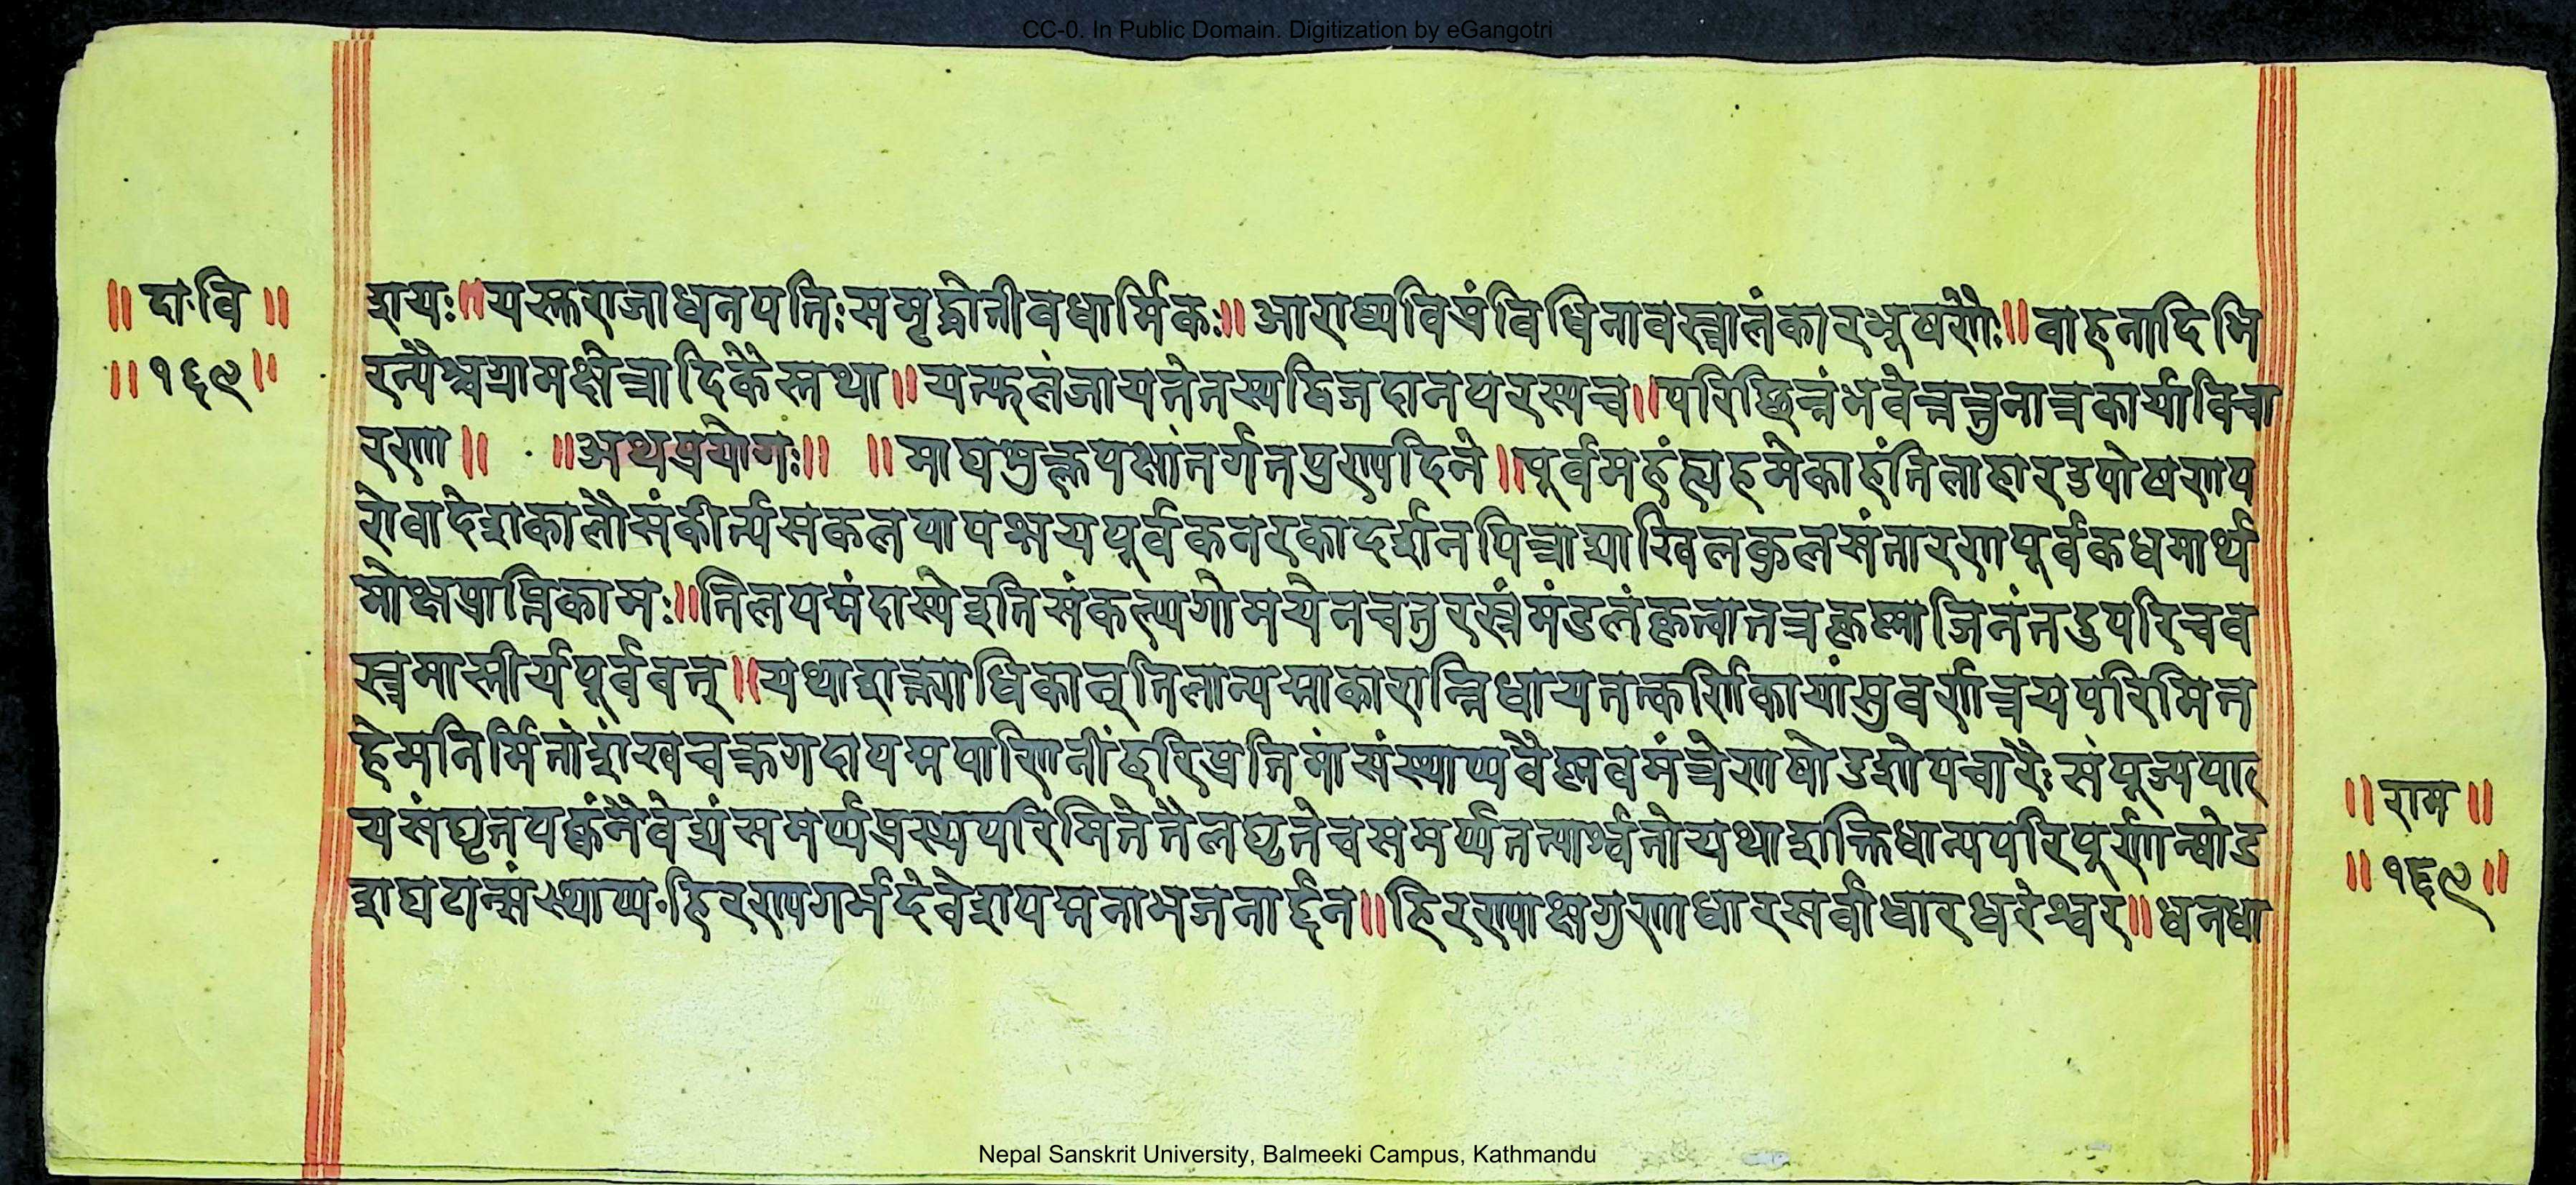 CC-0. In Public Domain. Digitization by eGangotri
॥ दा॰वि ॥
॥१६९॥
शयः॥यस्तुराजाधनपतिःसमृद्धोतीवधार्मिकः॥आराध्यविप्रंविधिनावस्त्रालंकारभूषणैः॥वाहनादिभि
रन्यैश्चग्रामक्षेत्रादिकैस्तथा॥यत्फलंजायतेतस्यद्विजदानपरस्यच॥परिछिन्नंभवेत्तत्तुनात्रकार्याविचा
रणा॥ ॥अथप्रयोगः॥ ॥माघशुक्लपक्षांतर्गतपुण्यदिने॥पूर्वमहंत्र्यहमेकाहंतिलाहारउपोषणप
रोवादेशकालौसंकीर्त्यसकलपापक्षयपूर्वकनरकादर्शनपित्राद्याखिलकुलसंतारणपूर्वकधमार्थ
मोक्षप्राप्तिकामः॥तिलपद्मंदास्येइतिसंकल्प्यगोमयेनचतुरस्रंमंडलंकृत्वातत्रकृष्णाजिनंतदुपरिचव
स्त्रमास्तीर्यपूर्ववत्॥यथाशक्त्याधिकान्तिलान्पद्माकारान्निधायतत्कर्णिकायांसुवर्णत्रयपरिमित
हेमनिर्मितांशंखचक्रगदापद्मपाणिनींहरिप्रतिमांसंस्थाप्यवैष्णवमंत्रेणषोडशोपचारैःसंपूज्यपा
यसंघृतपक्वंनैवेद्यंसमर्प्यप्रस्थपरिमितेतैलघृतेचसमर्प्यतत्पार्श्वतोयथाशक्तिधान्यपरिपूर्णान्षोड
शघटान्संस्थाप्य॰हिरण्यगर्भदेवेशपद्मनाभजनार्द्दन॥हिरण्याक्षगुणाधारसर्वाधारधरेश्वर॥धनधा
॥ राम ॥
॥ १६९ ॥
Nepal Sanskrit University, Balmeeki Campus, Kathmandu